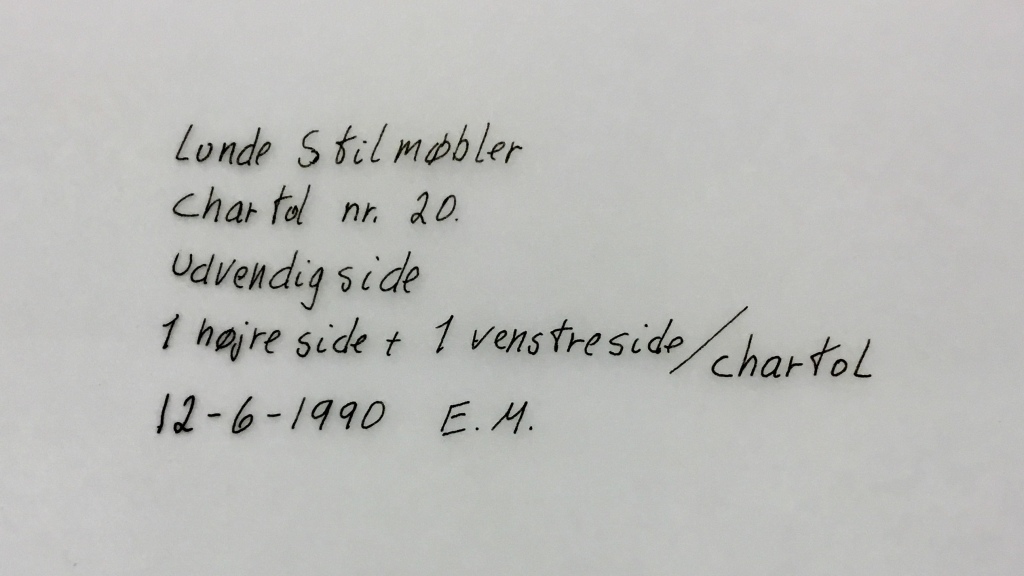 Lunde Stilmøbler
Chartol nr. 20.
Udvendig side
1 højre side + 1 venstre side/chartol
12-6-1990 E.M.